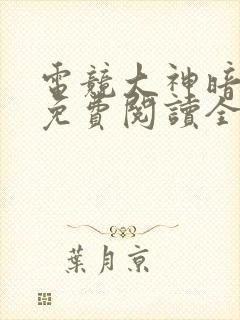 電競大神暗
免費閱讀全
葉月京